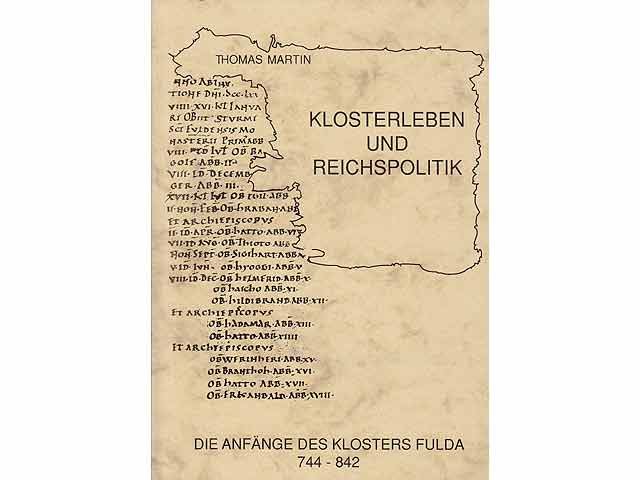 THOMAS MARTIN
KLOSTERLEBEN
UND
REICHSPOLITIK
TIONE DNI DCC LXX
VIIII XVI KL IANUA
RI OBIIT STURMI
SCI FULDENSIS MO
NASTERII PRIM ABB
OB BA
GOLF ABB II
VIII ID DECEMB
GER ABB III
XVII KL IUL OB EGIL ABB
II NON FEB OB HRABAN ABB
ET ARCHIEPISCOPUS
II ID APR OB HATTO ABB VI
VII ID AUG OB THIOTO ABB
NON SEPT OB SIGIHART ABBA
V ID IUN OB HUOGGI ABB V
VIII ID DEC OB HELMFRID ABB X
OB HAICHO ABB XI
OB HILDIBRAND ABB XII
ET ARCHIEPISCOPUS
OB HADAMAR ABB XIII
OB HATTO ABB XIIII
ET ARCHIEPISCOPUS
OB WERINHERI ABB XV
OB BRANTHOH ABB XVI
OB HATTO ABB XVII
OB ERKANBALD ABB XVIII
DIE ANFÄNGE DES KLOSTERS FULDA
744 - 842